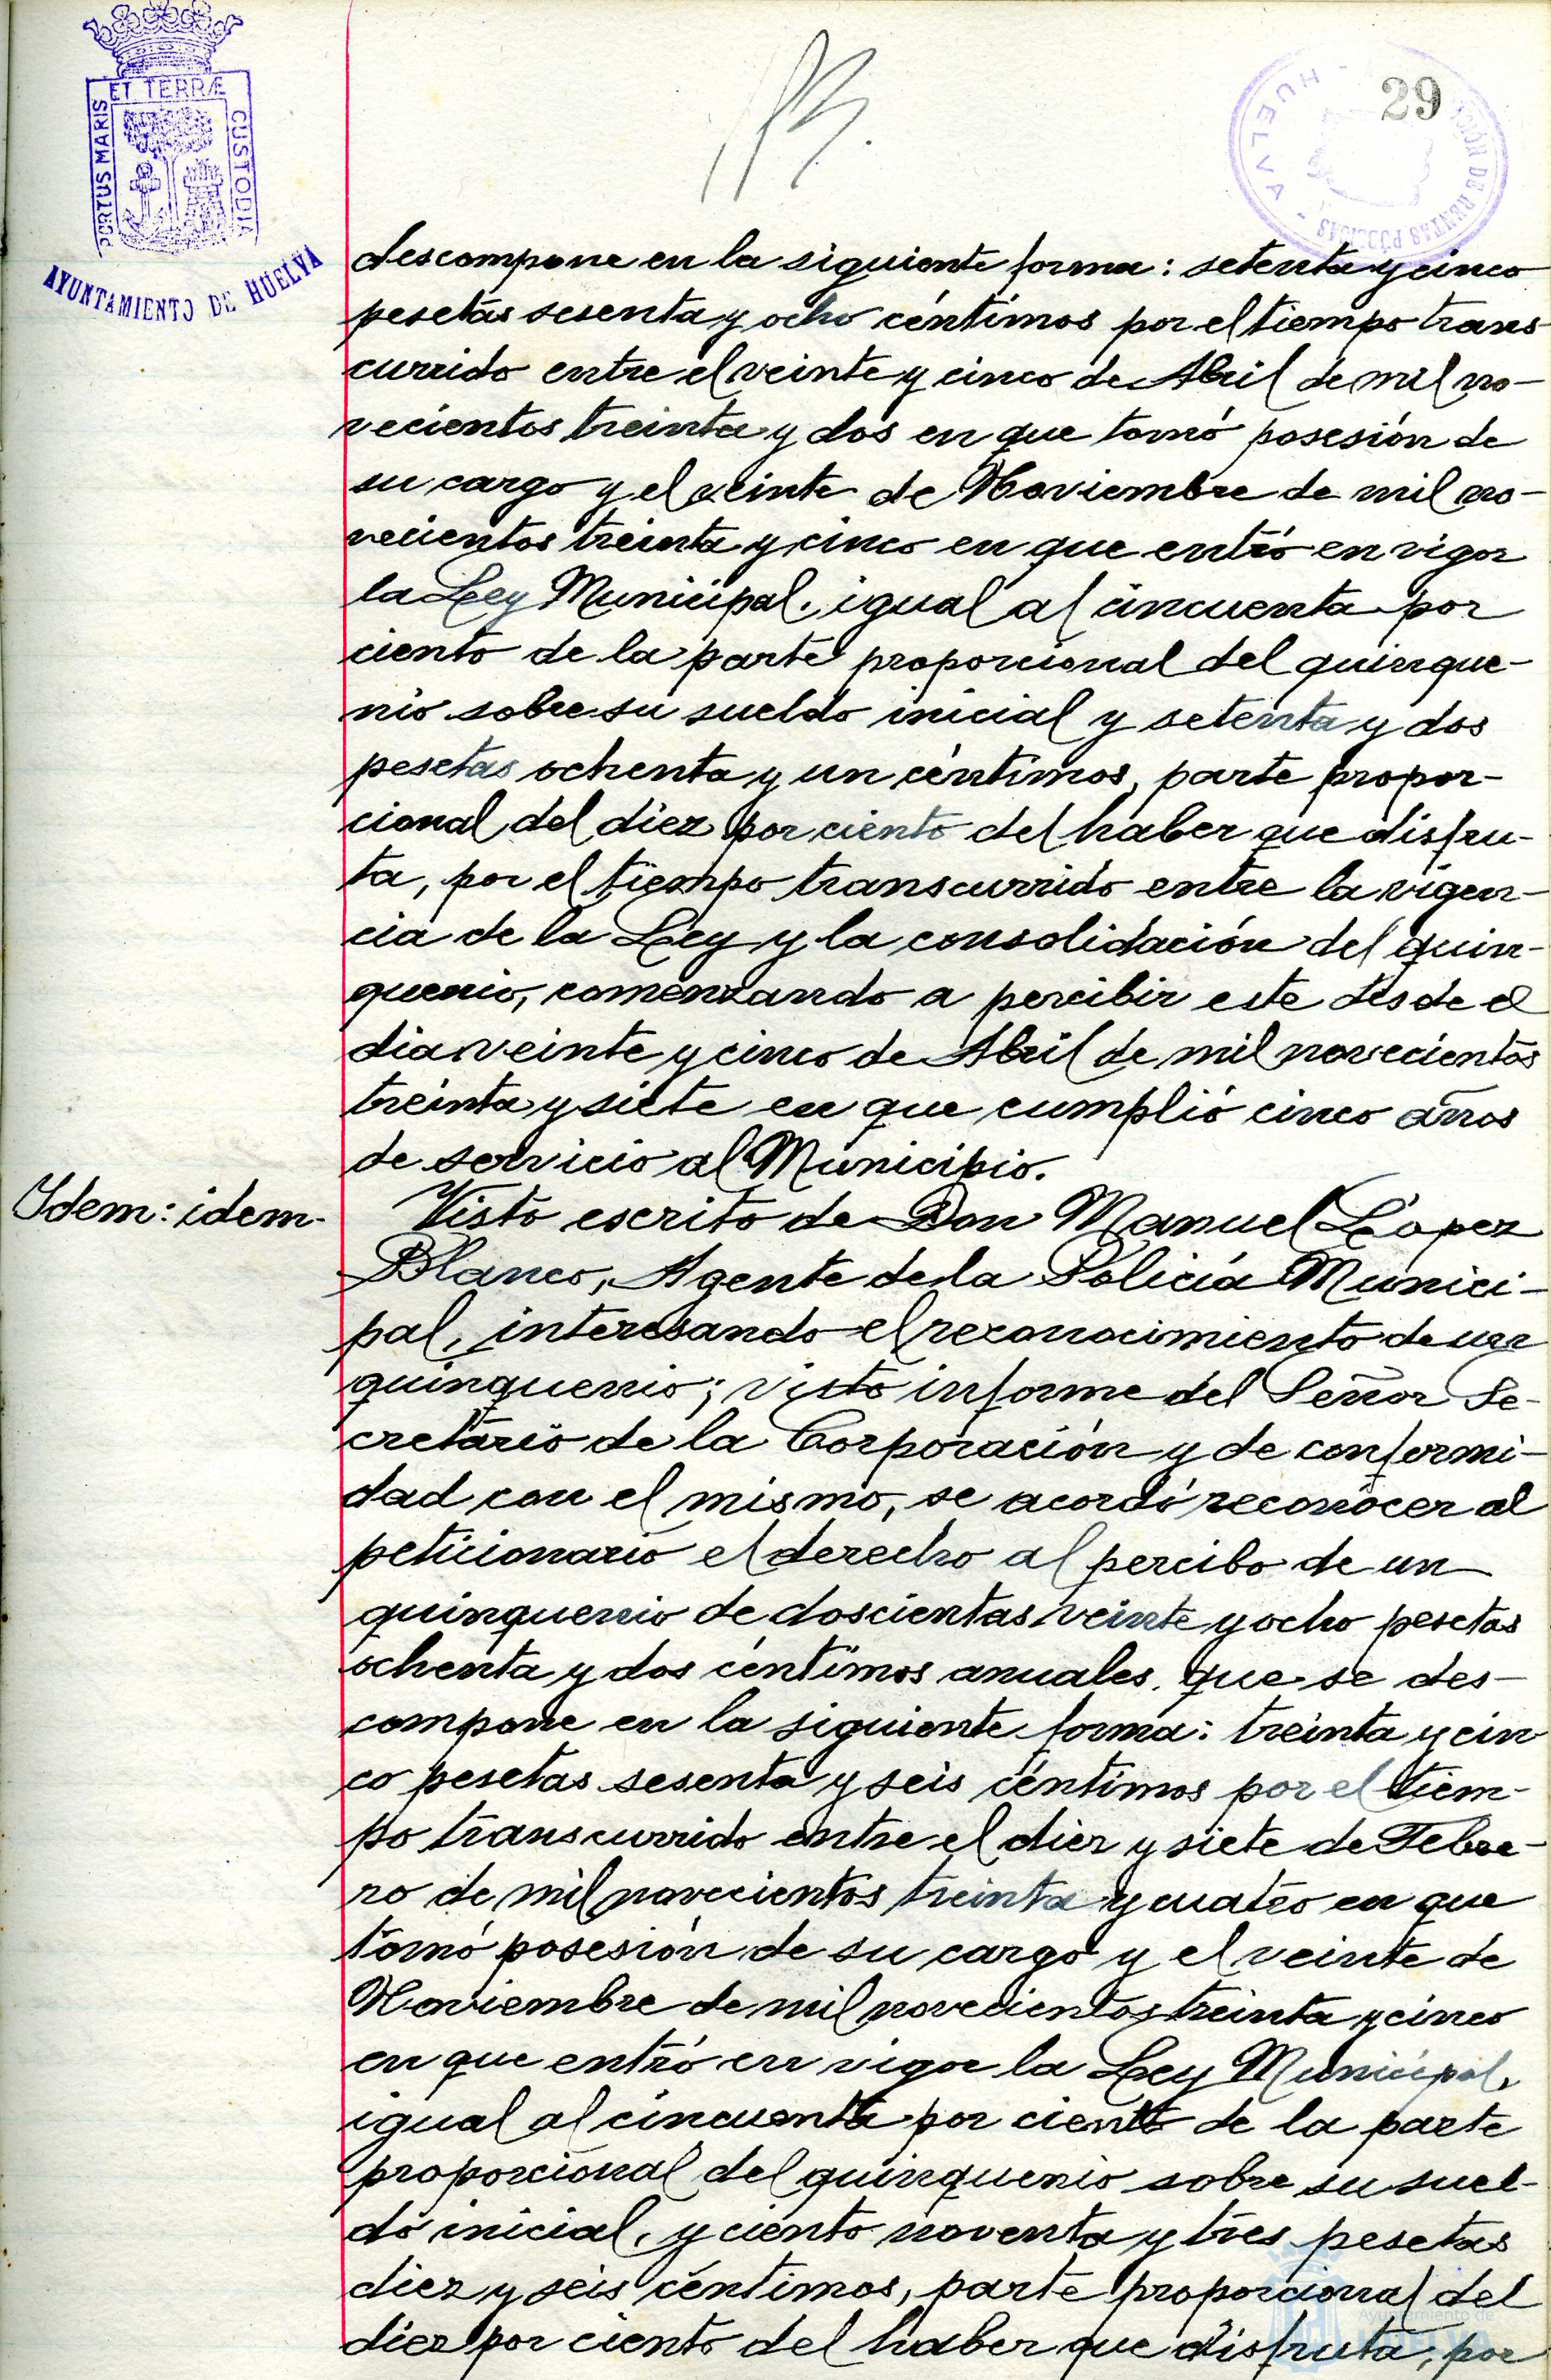 PORTUS MARIS
ET TERRÆ
CUSTODIA
AYUNTAMIENTO DE HUELVA
29
HUELVA
DE RENTAS PÚBLICAS
descompone en la siguiente forma: setenta y cinco
pesetas sesenta y ocho céntimos por el tiempo trans
currido entre el veinte y cinco de Abril de mil no-
vecientos treinta y dos en que tomó posesión de
su cargo y el veinte de Noviembre de mil no-
vecientos treinta y cinco en que entró en vigor
la Ley Municipal, igual al cincuenta por
ciento de la parte proporcional del quinque-
nio sobre su sueldo inicial y setenta y dos
pesetas ochenta y un céntimos, parte propor-
cional del diez por ciento del haber que disfru-
ta, por el tiempo transcurrido entre la vigen-
cia de la Ley y la consolidación del quin-
quenio, comenzando a percibir este desde el
dia veinte y cinco de Abril de mil novecientos
treinta y siete en que cumplió cinco años
de servicio al Municipio.
Idem: idem.
Visto escrito de Don Manuel López
Blanco, Agente de la Policía Munici-
pal, interesando el reconocimiento de un
quinquenio; visto informe del Señor Se-
cretario de la Corporación y de conformi-
dad con el mismo, se acordó reconocer al
peticionario el derecho al percibo de un
quinquenio de doscientas veinte y ocho pesetas
ochenta y dos céntimos anuales, que se des-
compone en la siguiente forma: treinta y cin
co pesetas sesenta y seis céntimos por el tiem-
po transcurrido entre el diez y siete de Febre-
ro de mil novecientos treinta y cuatro en que
tomó posesión de su cargo y el veinte de
Noviembre de mil novecientos treinta y cinco
en que entró en vigor la Ley Municipal,
igual al cincuenta por ciento de la parte
proporcional del quinquenio sobre su suel-
do inicial, y ciento noventa y tres pesetas
diez y seis céntimos, parte proporcional del
diez por ciento del haber que disfruta, por
Ayuntamiento de
HUELVA